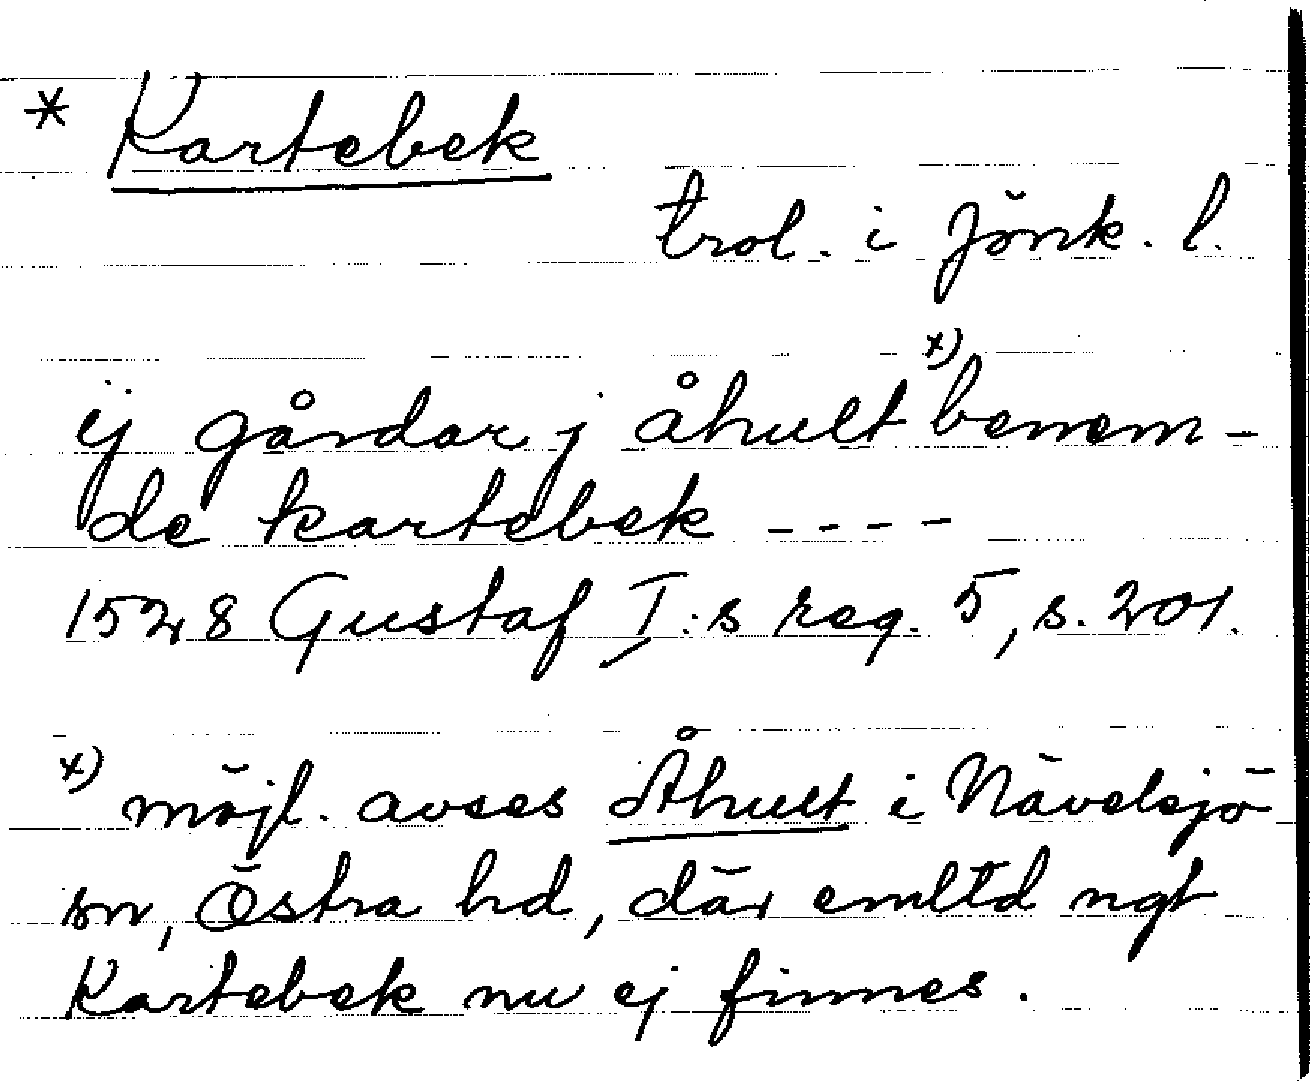 * Kartebek
trol. i Jönk. l.
ij gårdar j åhult x) benem-
de kartebek ----
1528 Gustaf I:s reg. 5, s. 201.
x) möjl. avses Åhult i Nävelsjö
sn, Östra hd, där emltd ngt
Kartebek nu ej finnes.